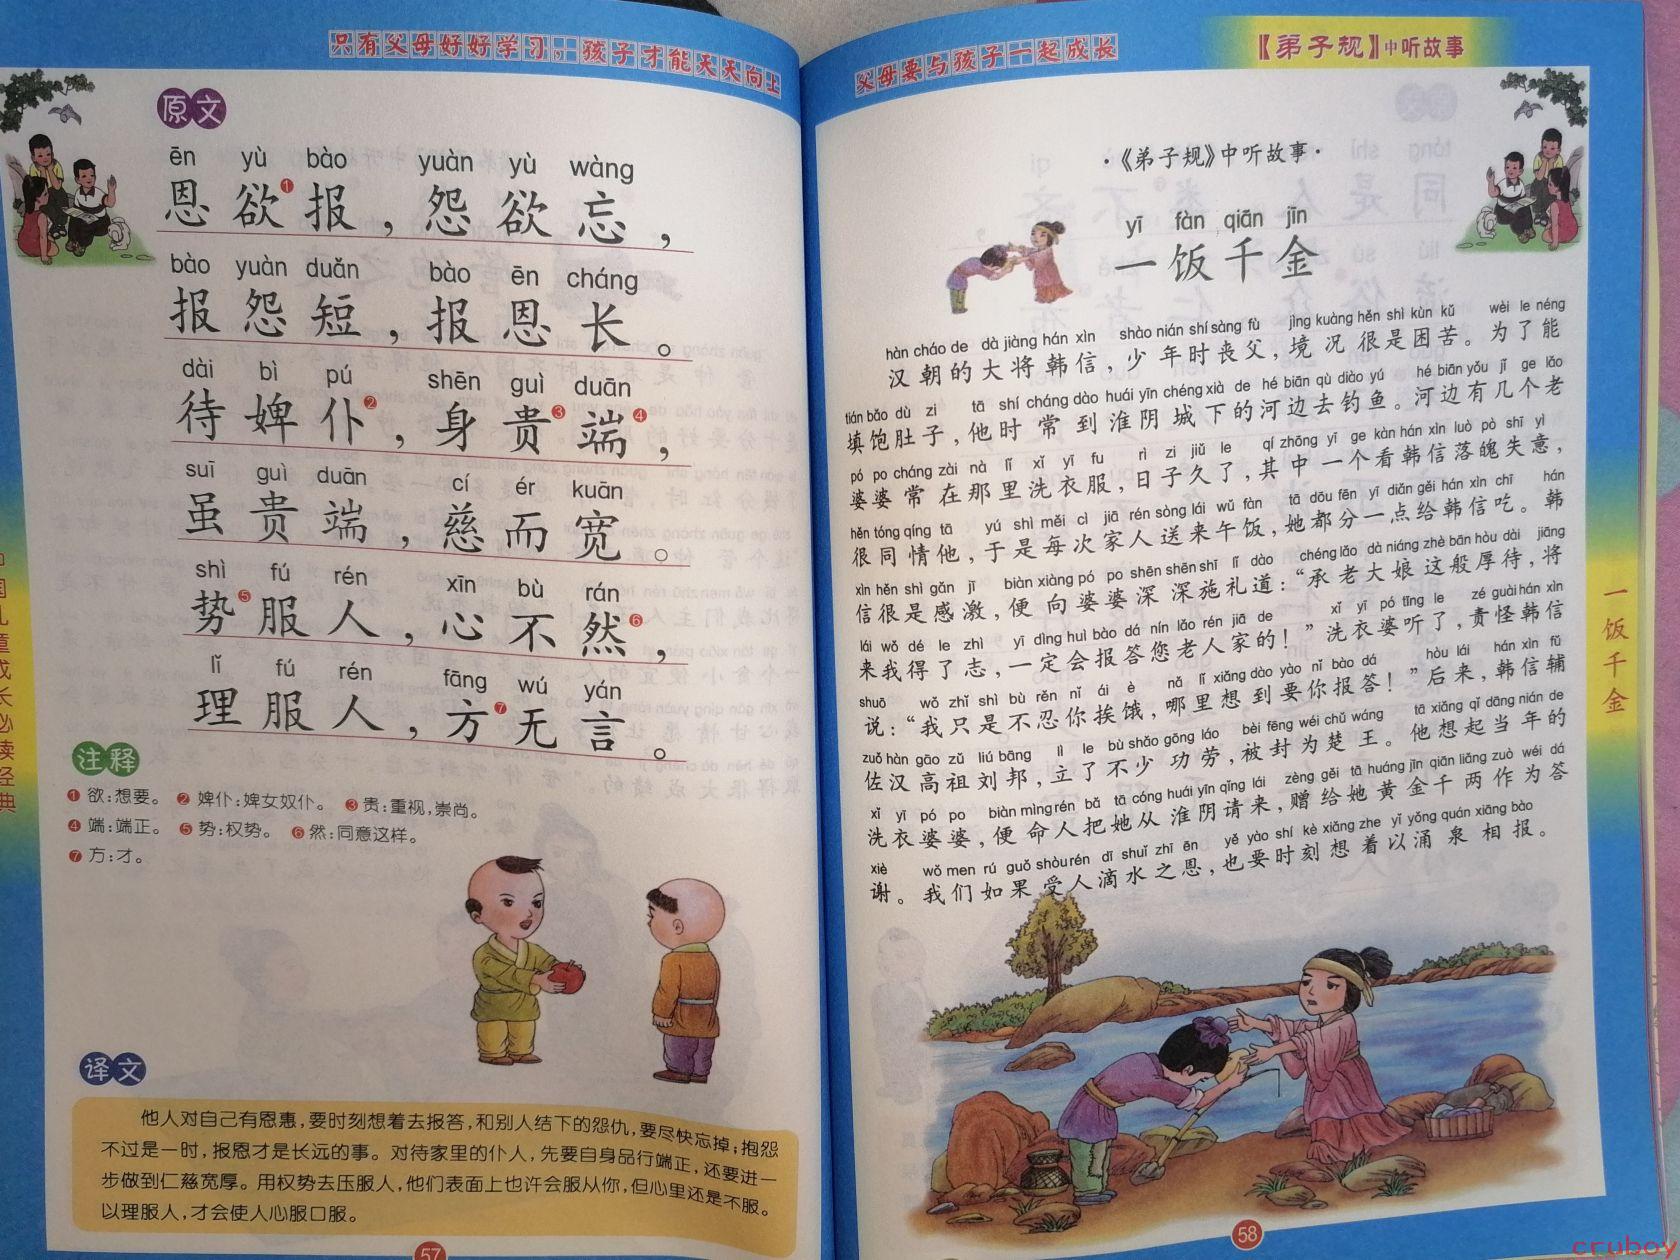 只有父母好好学习，孩子才能天天向上
原文
ēn yù bào yuàn yù wàng
恩欲❶报，怨欲忘，
bào yuàn duǎn bào ēn cháng
报怨短，报恩长。
dài bì pú shēn guì duān
待婢仆❷，身贵❸端❹，
suī guì duān cí ér kuān
虽贵端，慈而宽。
shì fú rén xīn bù rán
势❺服人，心不然❻，
lǐ fú rén fāng wú yán
理服人，方❼无言。
注释
❶ 欲：想要。 ❷ 婢仆：婢女奴仆。 ❸ 贵：重视，崇尚。
❹ 端：端正。 ❺ 势：权势。 ❻ 然：同意这样。
❼ 方：才。
译文
他人对自己有恩惠，要时刻想着去报答，和别人结下的怨仇，要尽快忘掉；抱怨
不过是一时，报恩才是长远的事。对待家里的仆人，先要自身品行端正，还要进一
步做到仁慈宽厚。用权势去压服人，他们表面上也许会服从你，但心里还是不服。
以理服人，才会使人心服口服。
57
国儿童成长必读经典
父母要与孩子一起成长
《弟子规》中听故事
·《弟子规》中听故事·
yī fàn qiān jīn
一饭千金
hàn cháo de dà jiàng hán xìn shào nián shí sàng fù jìng kuàng hěn shì kùn kǔ wèi le néng
汉朝的大将韩信，少年时丧父，境况很是困苦。为了能
tián bǎo dù zi tā shí cháng dào huái yīn chéng xià de hé biān qù diào yú hé biān yǒu jǐ ge lǎo
填饱肚子，他时常到淮阴城下的河边去钓鱼。河边有几个老
pó po cháng zài nà lǐ xǐ yī fu rì zi jiǔ le qí zhōng yī ge kàn hán xìn luò pò shī yì
婆婆常在那里洗衣服，日子久了，其中一个看韩信落魄失意，
hěn tóng qíng tā yú shì měi cì jiā rén sòng lái wǔ fàn tā dōu fēn yī diǎn gěi hán xìn chī hán
很同情他，于是每次家人送来午饭，她都分一点给韩信吃。韩
xìn hěn shì gǎn jī biàn xiàng pó po shēn shēn shī lǐ dào chéng lǎo dà niáng zhè bān hòu dài jiāng
信很是感激，便向婆婆深深施礼道：“承老大娘这般厚待，将
lái wǒ dé le zhì yī dìng huì bào dá nín lǎo rén jiā de xǐ yī pó tīng le zé guài hán xìn
来我得了志，一定会报答您老人家的！”洗衣婆听了，责怪韩信
shuō wǒ zhǐ shì bù rěn nǐ ái è nǎ lǐ xiǎng dào yào nǐ bào dá hòu lái hán xìn fǔ
说：“我只是不忍你挨饿，哪里想到要你报答！”后来，韩信辅
zuǒ hàn gāo zǔ liú bāng lì le bù shǎo gōng láo bèi fēng wéi chǔ wáng tā xiǎng qǐ dāng nián de
佐汉高祖刘邦，立了不少功劳，被封为楚王。他想起当年的
xǐ yī pó po biàn mìng rén bǎ tā cóng huái yīn qǐng lái zèng gěi tā huáng jīn qiān liǎng zuò wéi dá
洗衣婆婆，便命人把她从淮阴请来，赠给她黄金千两作为答
xiè wǒ men rú guǒ shòu rén dī shuǐ zhī ēn yě yào shí kè xiǎng zhe yǐ yǒng quán xiāng bào
谢。我们如果受人滴水之恩，也要时刻想着以涌泉相报。
58
一饭千金
cruboy